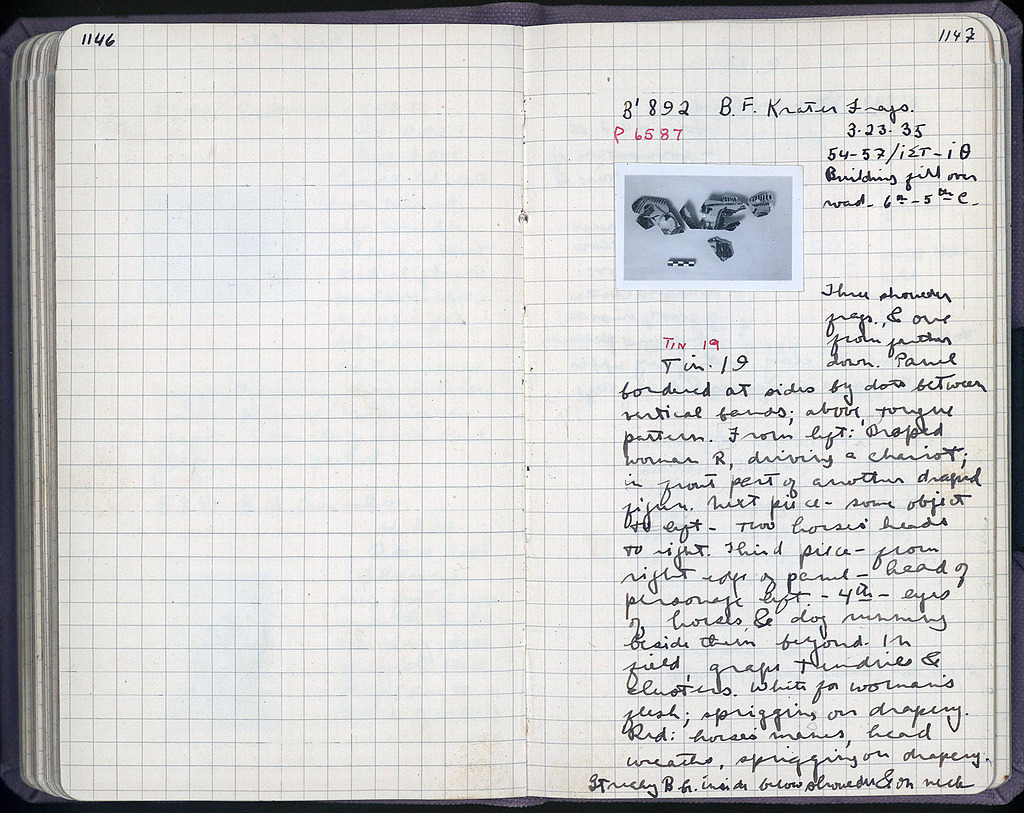 1146
1147
B' 892 B. F. Krater Frags.
P 6587
3-23-35
54-57/ΙΣΤ-ΙΘ
Building fill over
road - 6th-5th C.
Three shoulder
frags. & one
from farther
down. Panel
TIN 19
Tin. 19
bordered at sides by dots between
vertical bands; above, tongue
pattern. From left: Draped
woman R, driving a chariot;
in front part of another draped
figure. Next piece - some object
to left - two horses' heads
to right. Third piece - from
right edge of panel - head of
personage left. - 4th -
of horses, & dog running
beside them beyond. In
field grape tendrils &
clusters. White for woman's
flesh; sprigging on drapery.
Red: horses manes, head
wreaths, sprigging on drapery.
Streaky B br. inside below shoulder & on neck